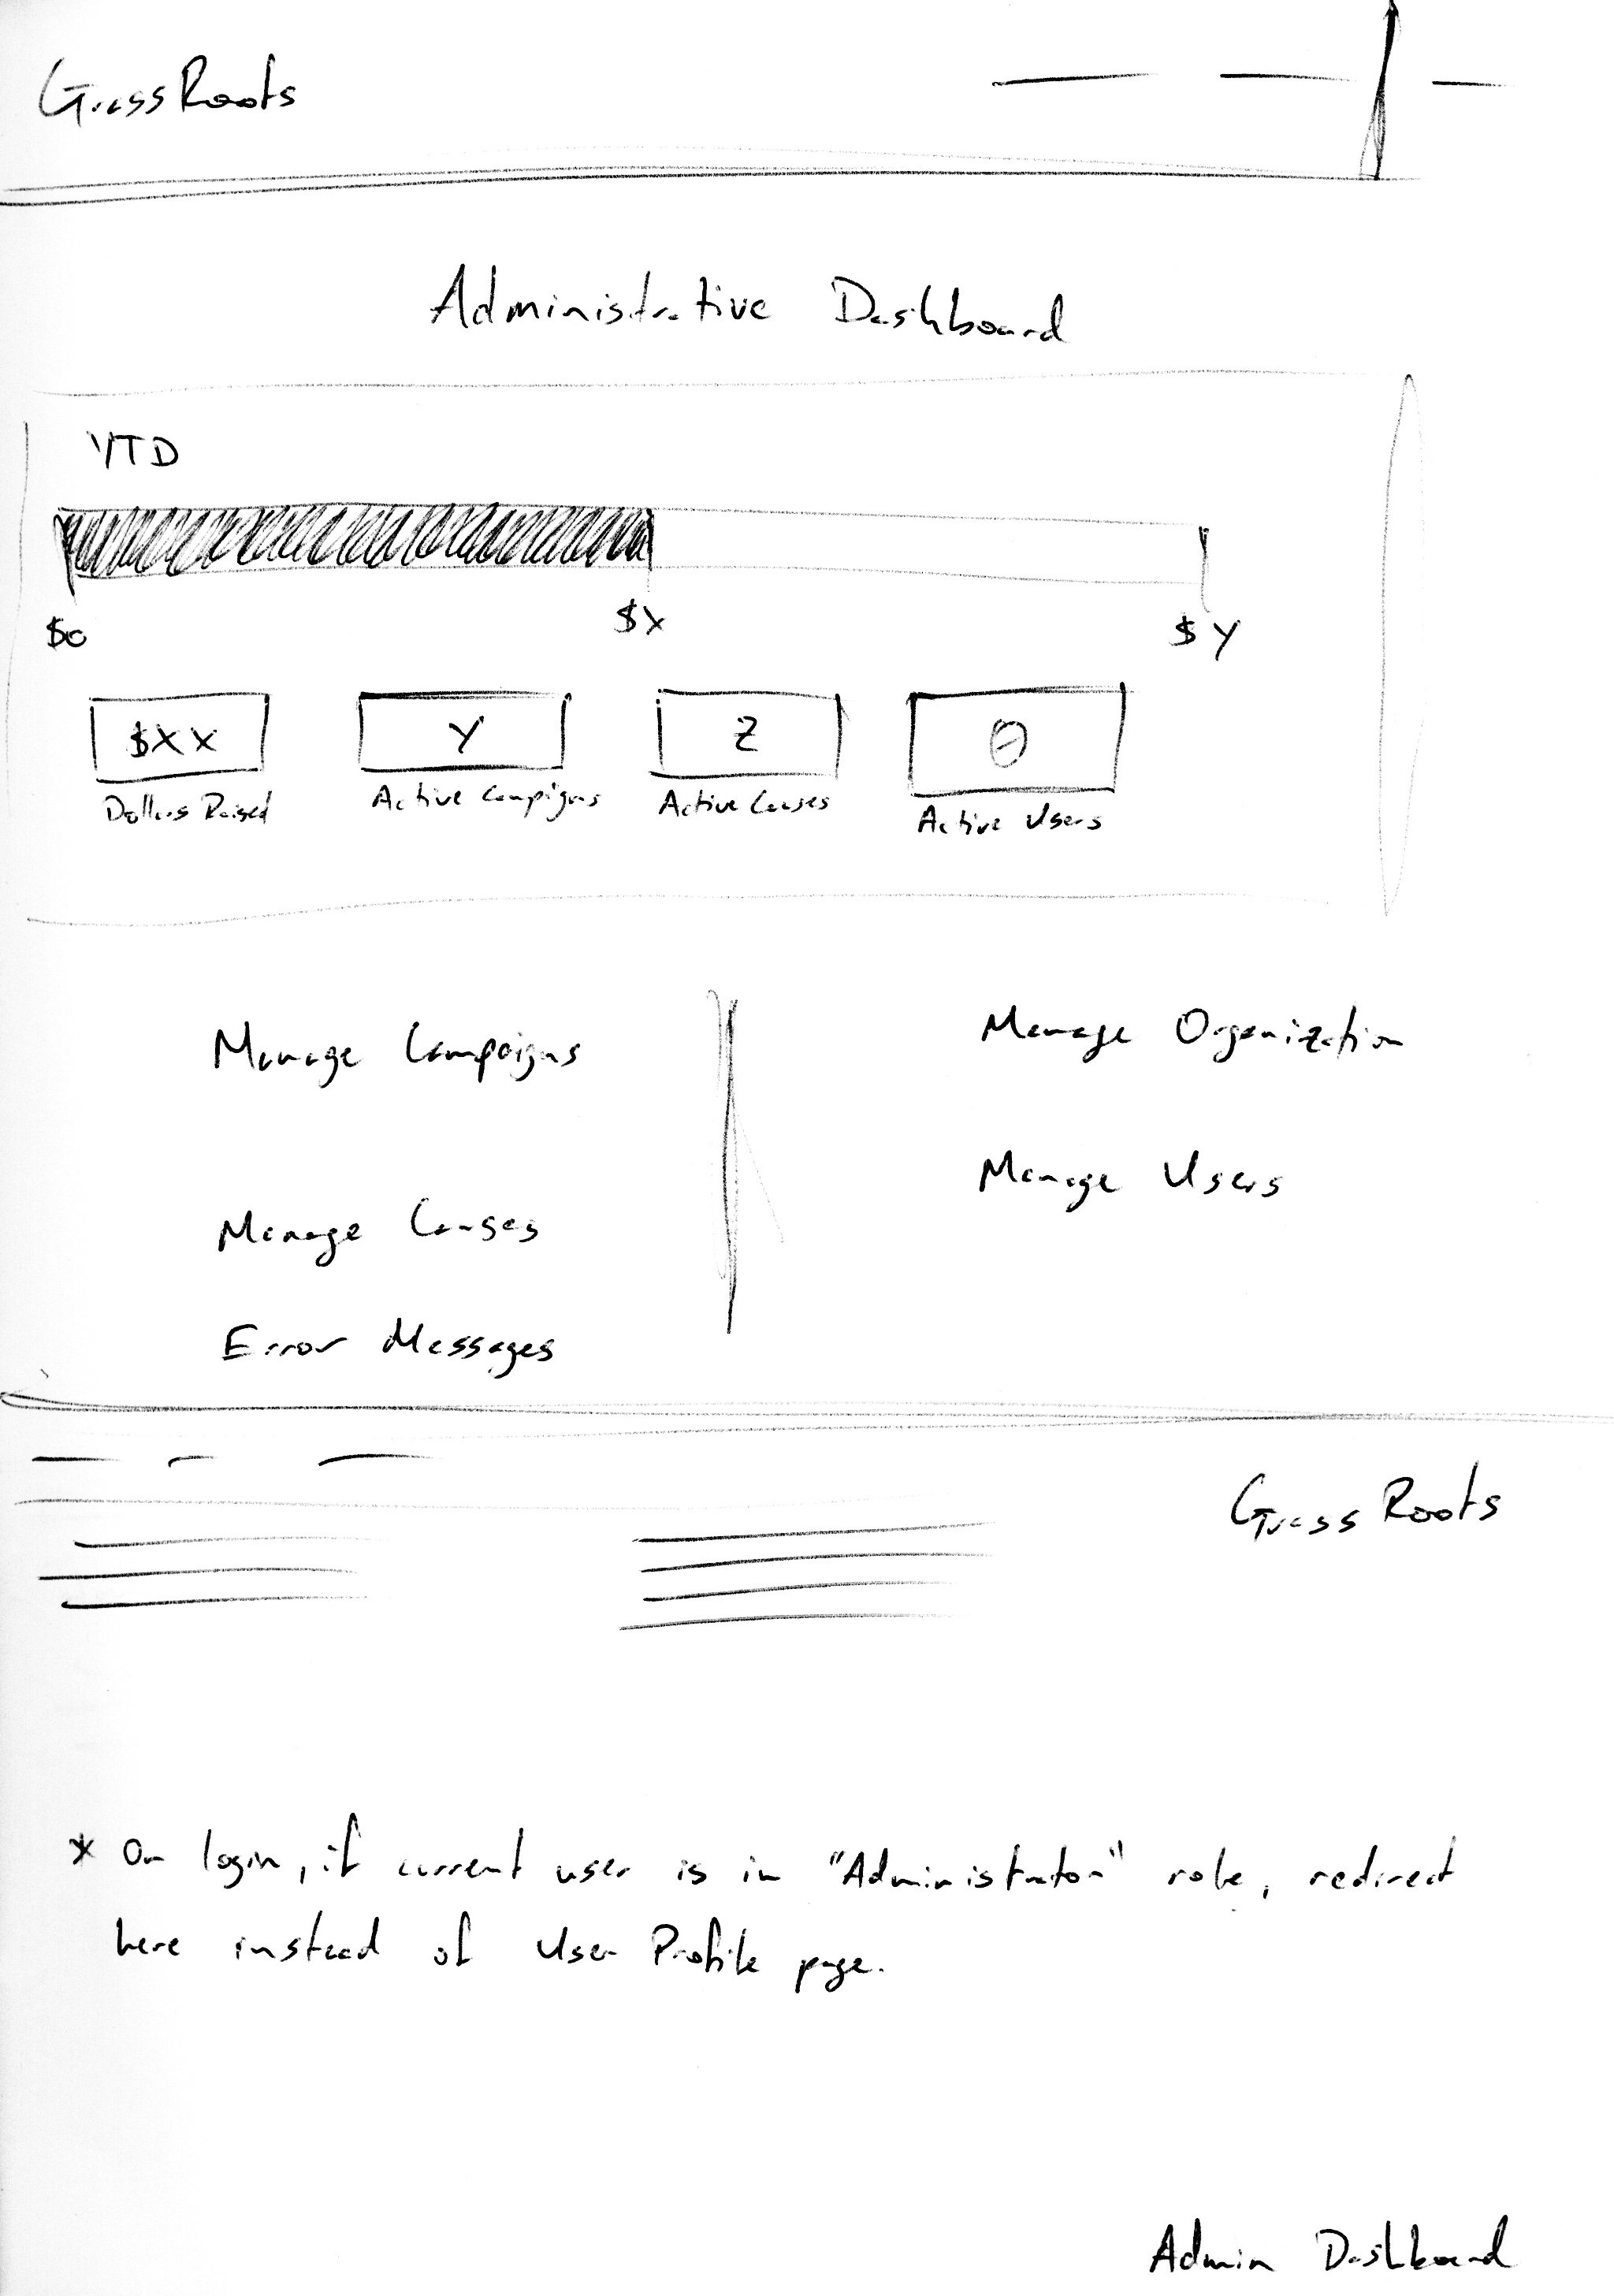 GrassRoots
Administrative Dashboard
YTD
$0 $X $Y
$XX Y Z θ
Dollars Raised Active Campigns Active Causes Active Users
Manage Campaigns
Manage Causes
Error Messages
Manage Organization
Manage Users
GrassRoots
* On login, if current user is in "Administrator" role, redirect
here instead of User Profile page.
Admin Dashboard